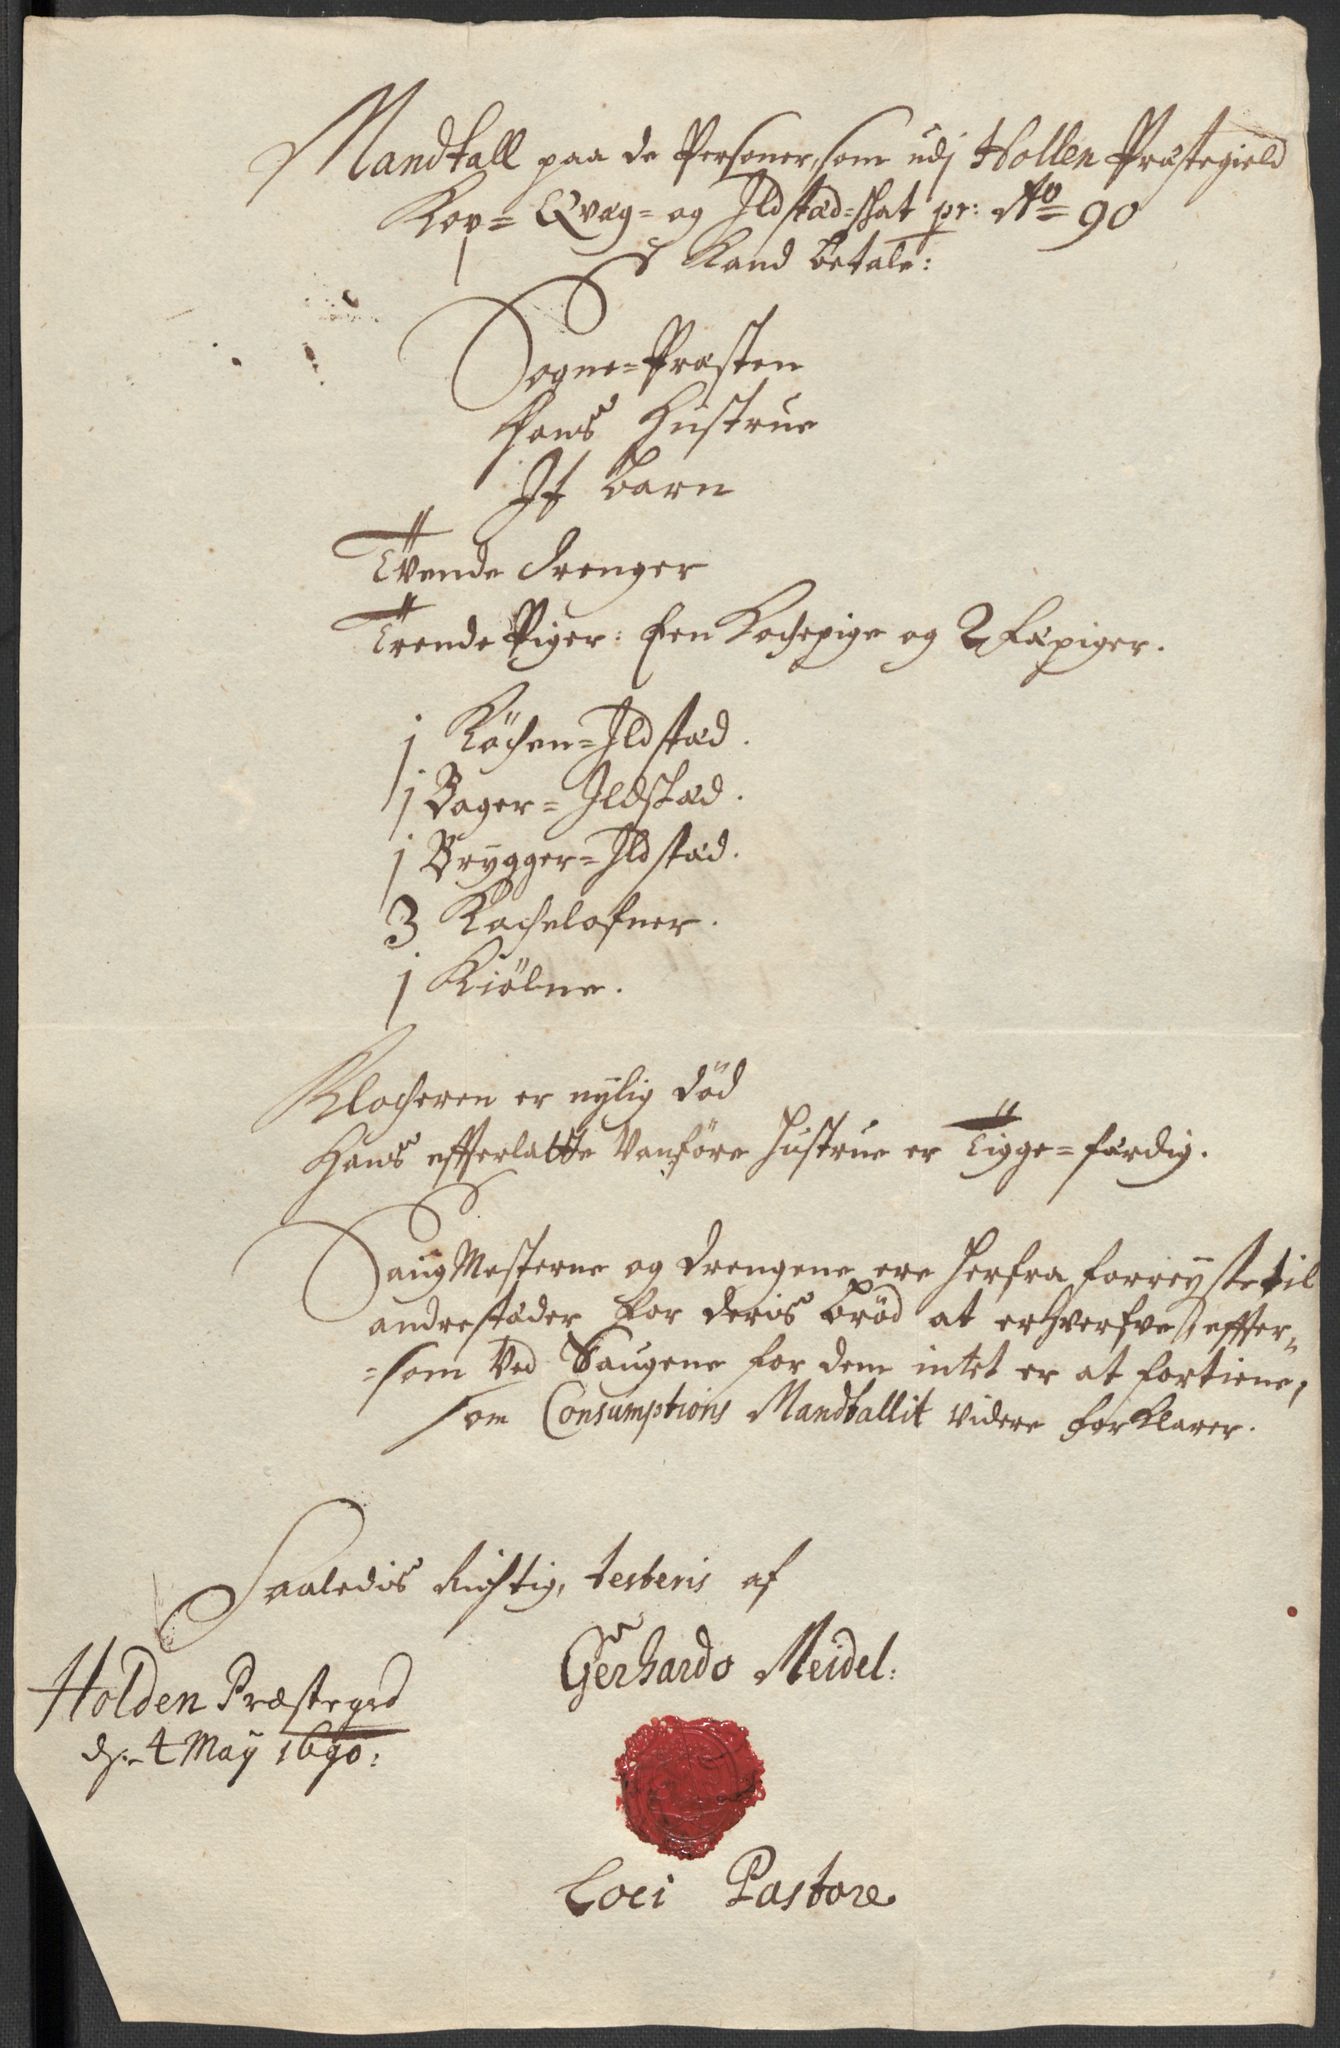 Mandtall paa de Personer, som udj Hollen Præstegield
Kop= Qvæg= og Ildstæd=skat pr: Ao 90
Kand betale:
Sogne=Præsten
Hans Hustrue
It barn
Tvende drenger
Trende Piger: Een Kochepige og 2 Fæpiger.
1 Köchen=Ildstæd.
1 Bager=Ildstæd.
1 Brygger=Ildstæd.
3 Kachelofner.
1 Kiölne.
Klocheren er nylig död
Hans effterlatte Vanföre Hustrue er Tigge=færdig.
Saug Mesterne og drengene ere herfra forreyste til
andre stæder for deris bröd at erhverfve, effter=
=som Ved Saugene for dem intet er at fortiene,
som Consumptions Mandtallit videre forklarer.
Saaledis Richtig, testeris af
Gerhardo Meidel:
Holden Præstegrd
d. 4 May 1690:
Loci Pastore.